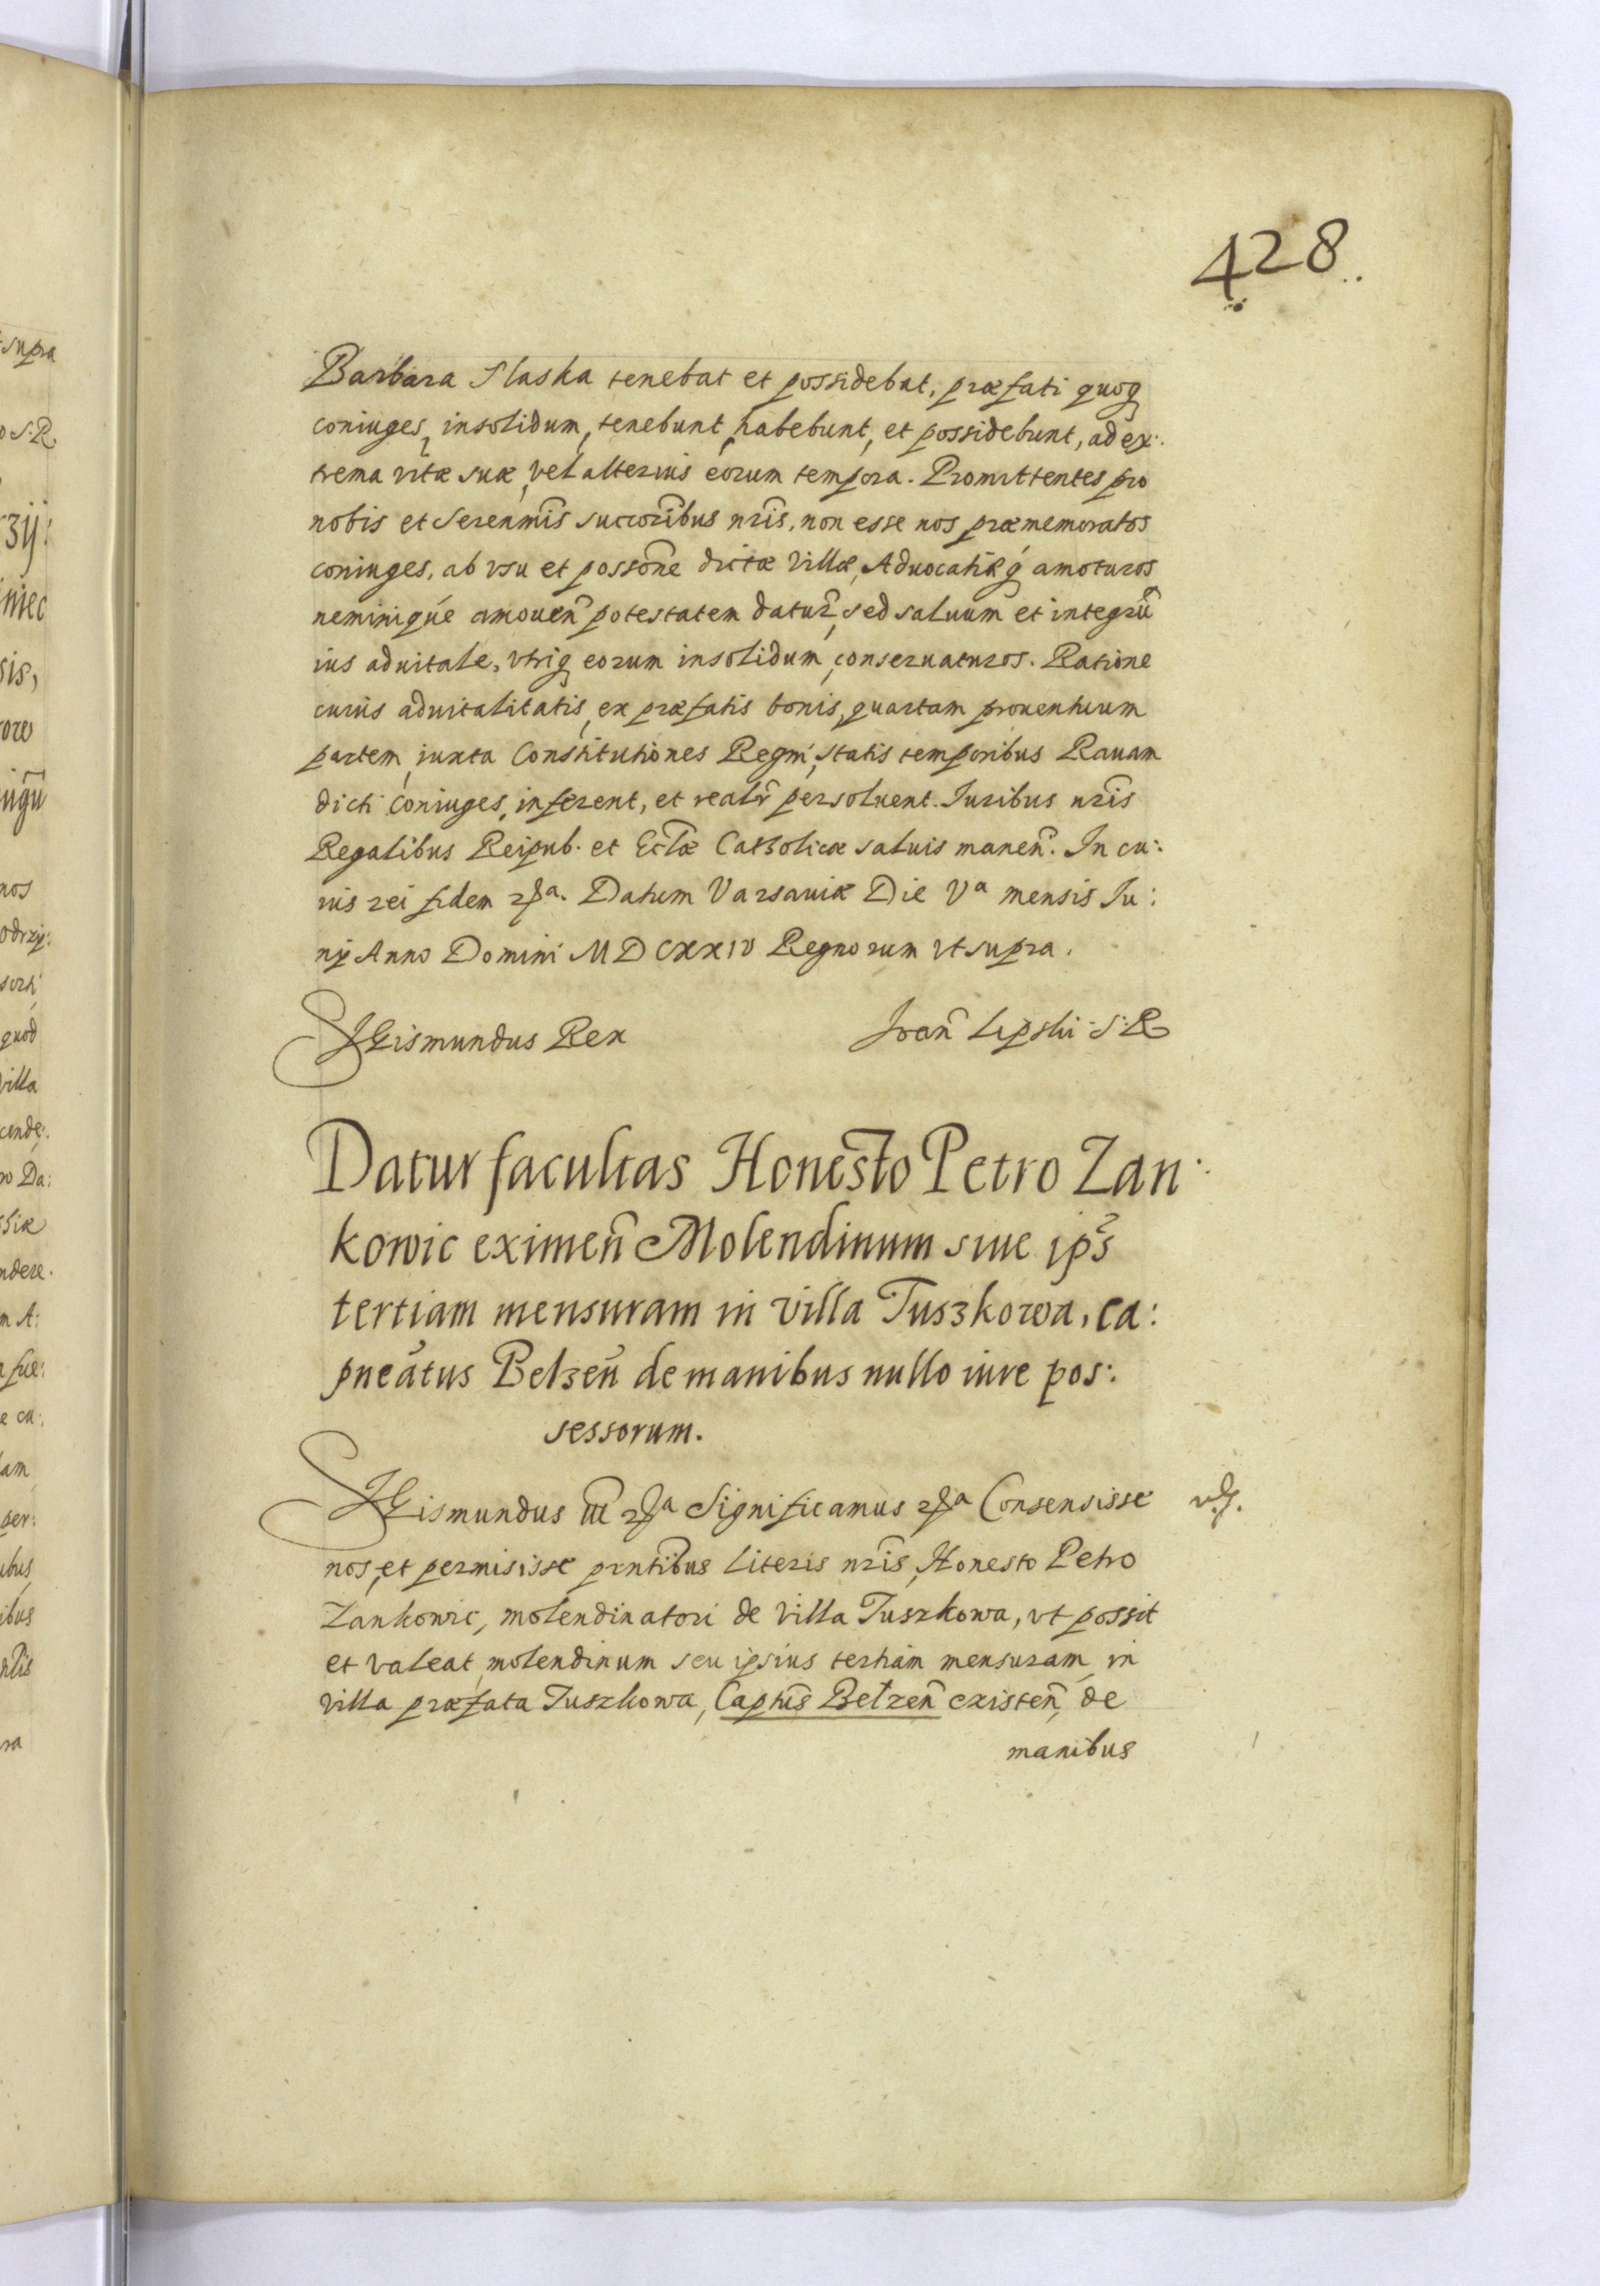 428
Barbara Slaska tenebat et possidebat, præfati quoq
coniuges, insolidum, tenebunt, habebunt, et possidebunt, ad ex:
trema vitæ suæ, vel alterius eorum tempora. Promittentes pro
nobis et Serenm̃is succorĩbus nr̃is, non esse nos præmemoratos
coniuges, ab vsu et possõne dictæ Villæ, Aduocatiæq́ amoturos
neminiq́ue amouen̄ potestatem datur̄, sed saluum et integrū
ius aduitale, vtriq eorum insolidum, conseruaturos. Ratione
cuius aduitalitatis, ex præfatis bonis, quartam prouentuum
partem, iuxta Constitutiones Regni, statis temporibus Rauam
dicti Coniuges, inferent, et realr̃ persoluent. Iuribus nr̃is
Regalibus Reipub. et Ecl̃æ Catholicæ saluis manen̄. In cu:
ius rei fidem &a. Datum Varsauiæ Die Va mensis Iu:
nij Anno Domini MDCXXIV Regnorum vt supra.
Sigismundus Rex Ioan̄ Lipski S: R
Datur facultas Honesto Petro Zan:
kowic eximen̄ Molendinum siue ip̄s
tertiam mensuram in villa Tuszkowa, Ca:
pneātus Belzen̄ de manibus nullo iure pos:
sessorum.
Sigismundus III &a Significamus &a Consensisse
nos, et permisisse prntĩbus literis nr̃is, Honesto Petro
Zankowic, molendinatori de villa Tuszkowa, vt possit
et valeat molendinum seu ipsius tertiam mensuram in
villa præfata Tuszkowa, Captūs Belzen̄ existen̄, de
manibus